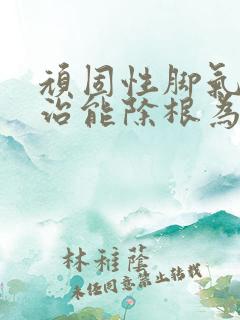 頑固性脚氣
治能除根為
林稚蔭
未经同意禁止转载